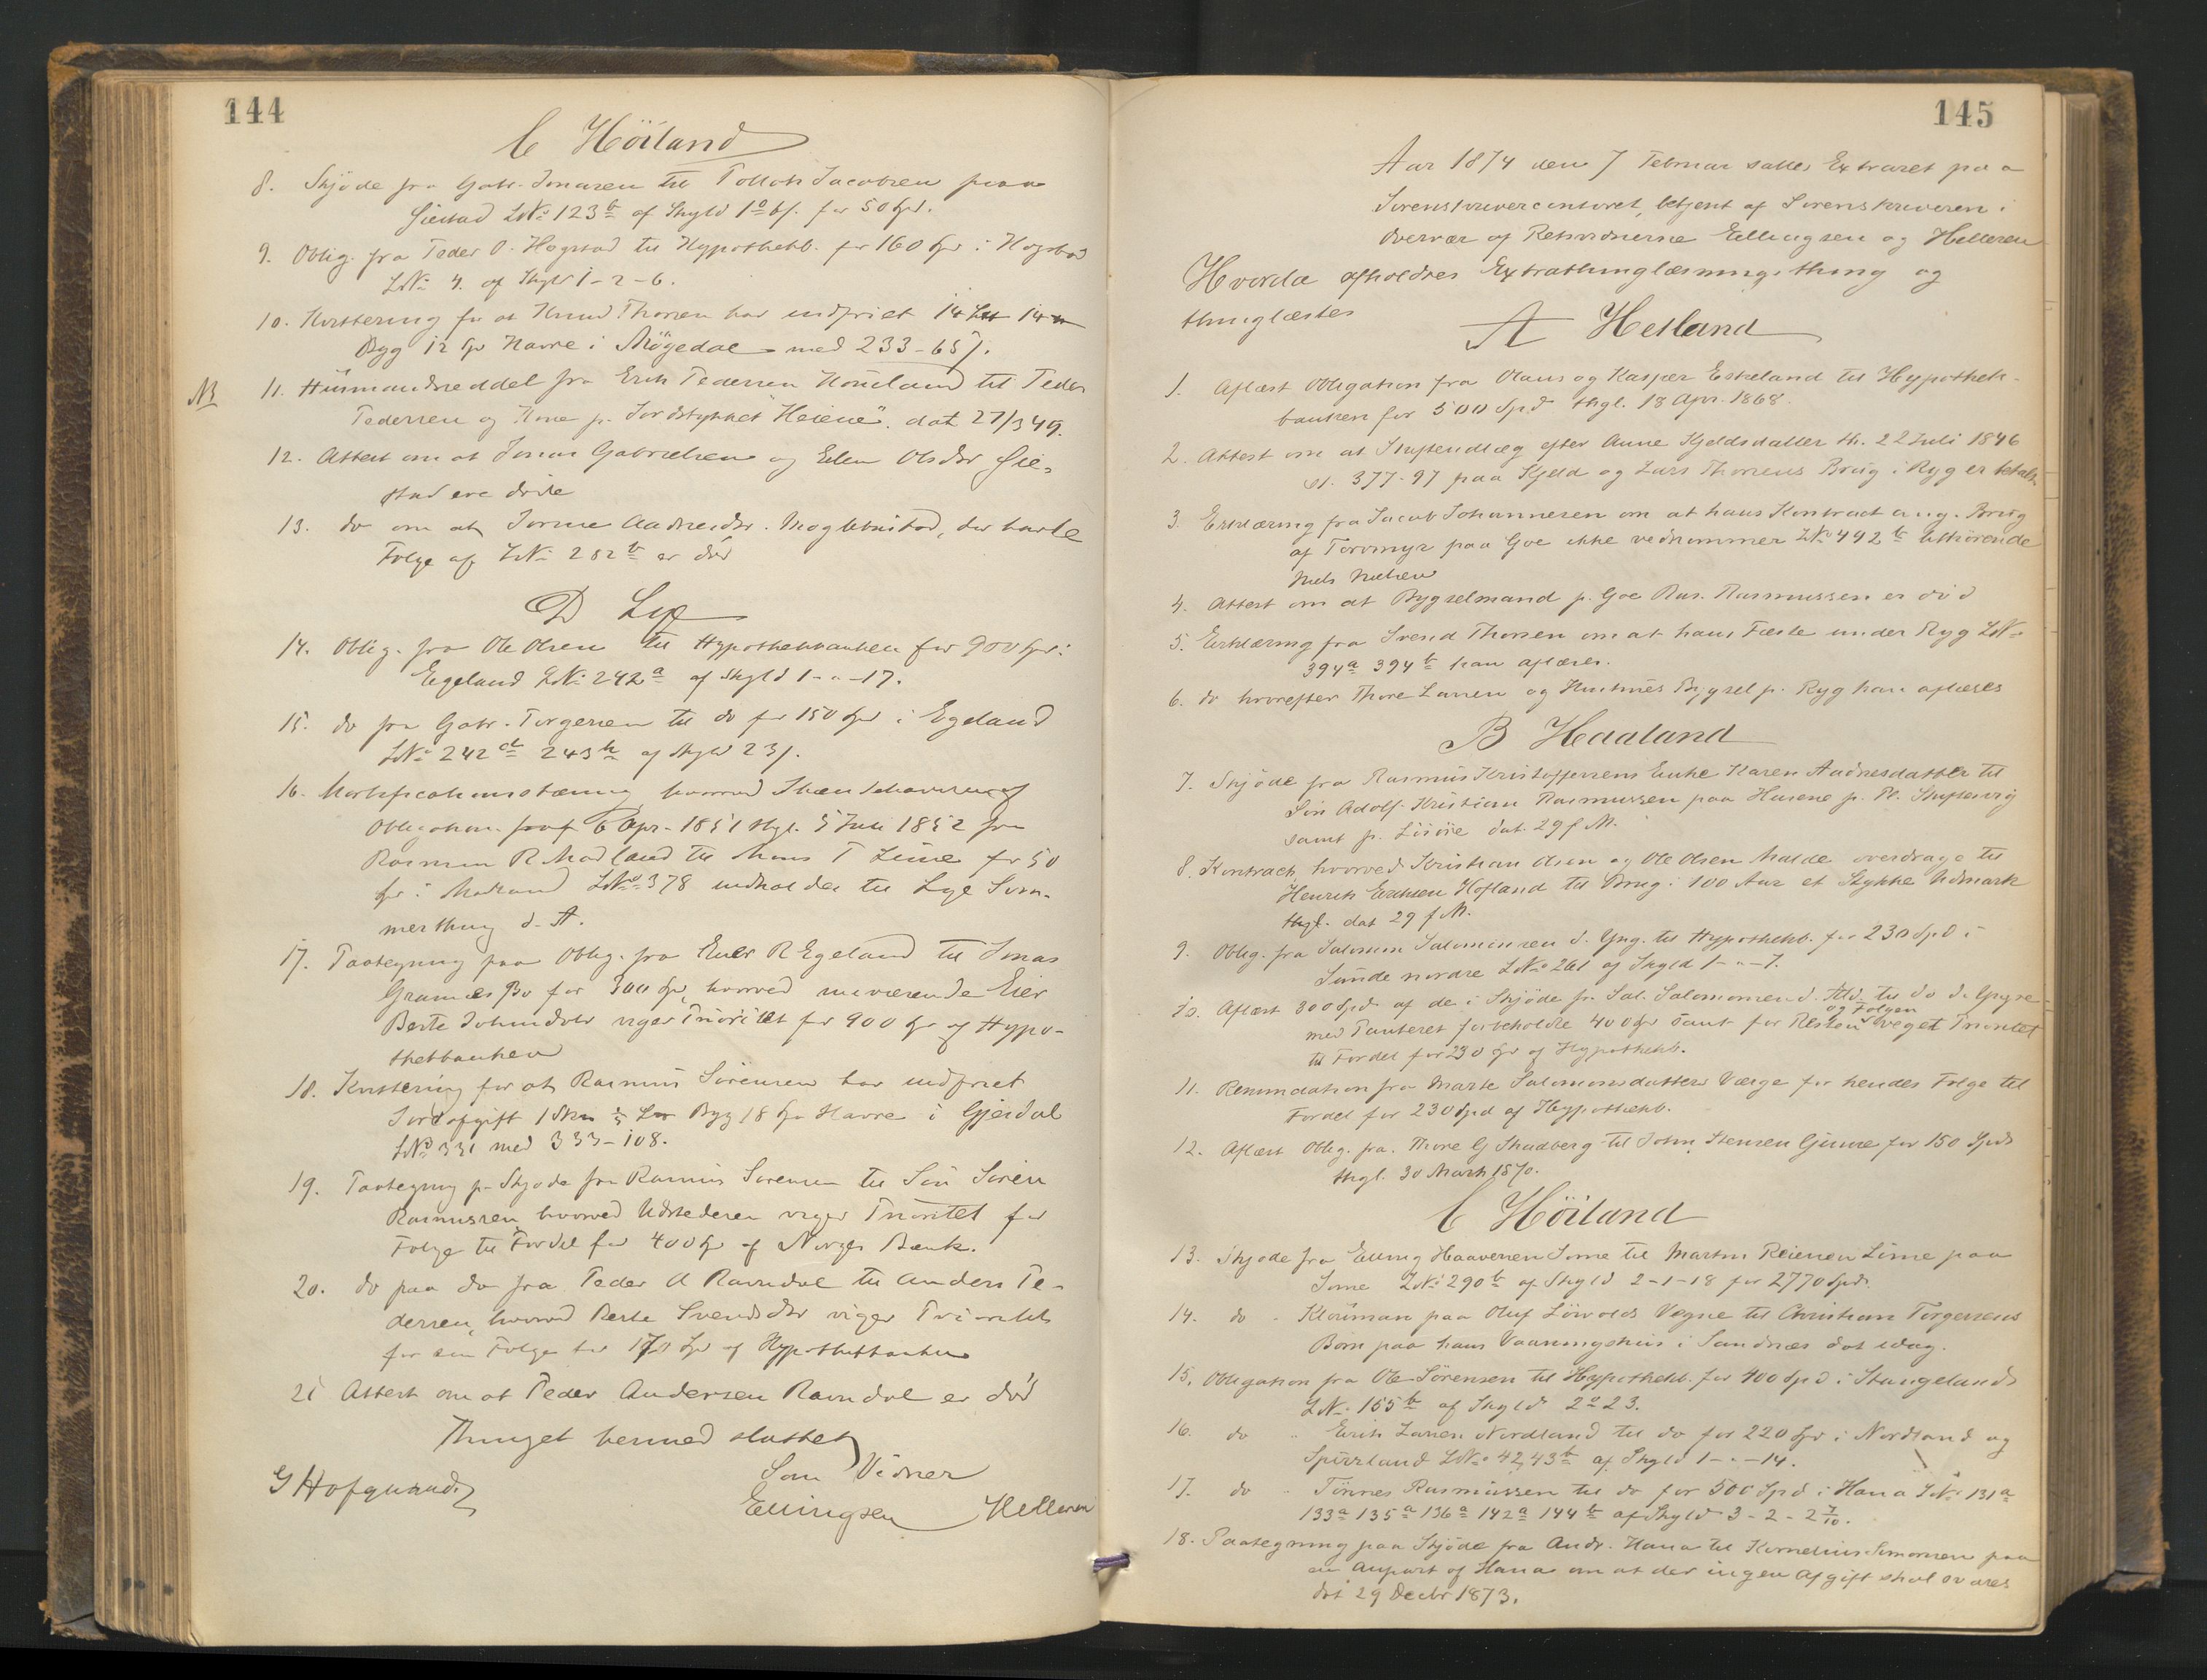 144
C Höiland
8. Skjöde fra Gabr. Jonasen til Tollak Jacobsen paa
Giestad LN: 123b af Skyld 1 o bf. for 50 Spd.
9. Oblig. fra Peder O. Hogstad til Hypothekb. for 160 Spd i Hogstad
LN: 4. af Skyld 1-2-6.
10. Kvittering for at Knud Thorsen har indfriet 14
Byg 12 Spd Havre i Møgedal med 233-65 f.
NB 11. Husmandsseddel fra Erik Pedersen Houeland til Peder
Pedersen og Kone p. Jordstykket "Heiene". dat 27/3 49.
12. Attest om at Jonas Gabrielsen og Elen Olsdtr Gie-
stad ere döde
13. do om at Jorine Aadnesdtr. Moglebustad, der havde
Folge af LN: 282b er död
D Lye
14. Oblig. fra Ole Olsen til Hypothekbanken for 900 Spd i
Egeland LN: 242a af Skyld 1-"-17.
15. do fra Gabr. Torgersen til do for 150 Spd i Egeland
LN: 242 243b af Skyld 23 f.
16. Mortificationsstævning hvorved
Obligation 6 Apr. 1851 thgl. 5 Juli 1852 fra
Rasmus R Madland til Mons T Lime for 50
Spd i Madland LNo 378 indkaldes til Lye Som-
merthing d. A.
17. Paategning paa Oblig. fra Ener R Egeland til Jonas
Grames Bo for 300 Spd, hvorved nuværende Eier
Berte Johnsdatr viger Prioritet for 900 Spd af Hypo-
thekbanken
18. Kvittering for at Rasmus Sörensen har indfriet
Jordafgift 1 Skm Byg 18 Spd Havre i Gjesdal
LNo 331 med 333-108.
19. Paategning p. Skjöde fra Rasmus Sorensen til Sön Sören
Rasmussen, hvorved Udstederen viger Prioritet for
Folge til Fordel for 400 Spd af Norges Bank.
20. do paa do fra Peder A Ravndal til Anders Pe-
dersen, hvorved Berte Svendsdtr viger Prioritet
for sin Folge for 170 Spd af Hypothekbanken
21 Attest om at Peder Andersen Ravndal er död
Thinget hermed sluttet
Som Vidner
G Hofgaard
Ellingsen Helleren
145
Aar 1874 den 7 Februar sattes Extraret paa
Sorenskrivercontoret, betjent af Sorenskriveren i
Overvær af Retsvidnerne Ellingsen og Helleren
Hvorda afholdtes Extrathinglæsningsthing og
thinglæstes
A Hetland
1. Aflæst Obligation fra Olaus og Kasper Eskeland til Hypothek-
banken for 500 Spd thgl. 18 Apr. 1868.
2. Attest om at Skiftendlæg efter Anne Kjeldsdatter th. 22 Juli 1846
st. 377-97 paa Kjeld og Lars Thorsens Brug i Ryg er betalt
3. Erklæring fra Jacob Johannesen om at hans Kontract ang. Brug
af Torvmyr paa Goe ikke vedkommer LNo 492b tilhörende
Niels Nielsen
4. Attest om at Bygselmand p. Goe Ras. Rasmussen er död
5. Erklæring fra Svend Thorsen om at hans Fæste under Ryg LN:
394a 394b kan aflæses.
6. do hvorefter Thore Larsen og Hustrues Bygsel p. Ryg kan aflæses
B Haaland
7. Skjöde fra Rasmus Kristoffersens Enke Karen Aadnesdatter til
Sön Adolf Kristian Rasmussen paa Husene p. Pl.
samt p. dat. 29 f. M.
8. Kontrack, hvorved Kristian Olsen og Ole Olsen Malde overdrage til
Henrik Eriksen Hofland til Brug i 100 Aar et Stykke Udmark
thgl. dat 29 f. M.
9. Oblig. fra Salomon Salomonsen d. Yng. til Hypothekb. for 230 Spd i
Sunde nordre LNo 261 af Skyld 1-"-7.
10. Aflæst 300 Spd. af de i Skjöde fr. Sal. Salomonsen d. Æld. til do d. Yngre
med Panteret forbeholdte 400 Spd samt for Resten og Folgen veget Prioritet
til Fordel for 230 Spd af Hypothekb.
11. Renunciation fra Marte Salomonsdatters Værge for hendes Folge til
Fordel for 230 Spd af Hypothekb.
12. Aflæst Oblig. fra. Thore G Skadberg til John Stensen Gimre for 150 Spd
thgl. 30 Marts 1870.
C Höiland
13. Skjöde fra Elling Haaversen Sorne til Martin Reiersen Lime paa
Some LN: 290b af Skyld 2-1-18 for 2770 Spd.
14. do " Klouman paa Oluf Lövolds Vegne til Christian Torgersens
Börn paa hans Vaaningshus i Sandnæs dat idag.
15. Obligation fra Ole Sörensen til Hypothekb. for 400 Spd i Stangeland
LN: 155b af Skyld 2 o 23.
16. do " Erik Larsen Nordland til do for 220 Spd i Nordland og
LNo 42, 43b af Skyld 1-"-14.
17. do " Tönnes Rasmussen til do for 500 Spd i Hana LN: 131a
133a 135a 136a 142a 144b af Skyld 3-2-2 7/10.
18. Paategning paa Skjöde fra Andr. Hana til Kornelius Simonsen paa
en Anpart af Hana om at der ingen Afgift skal svares
dat 29 Decbr 1873.